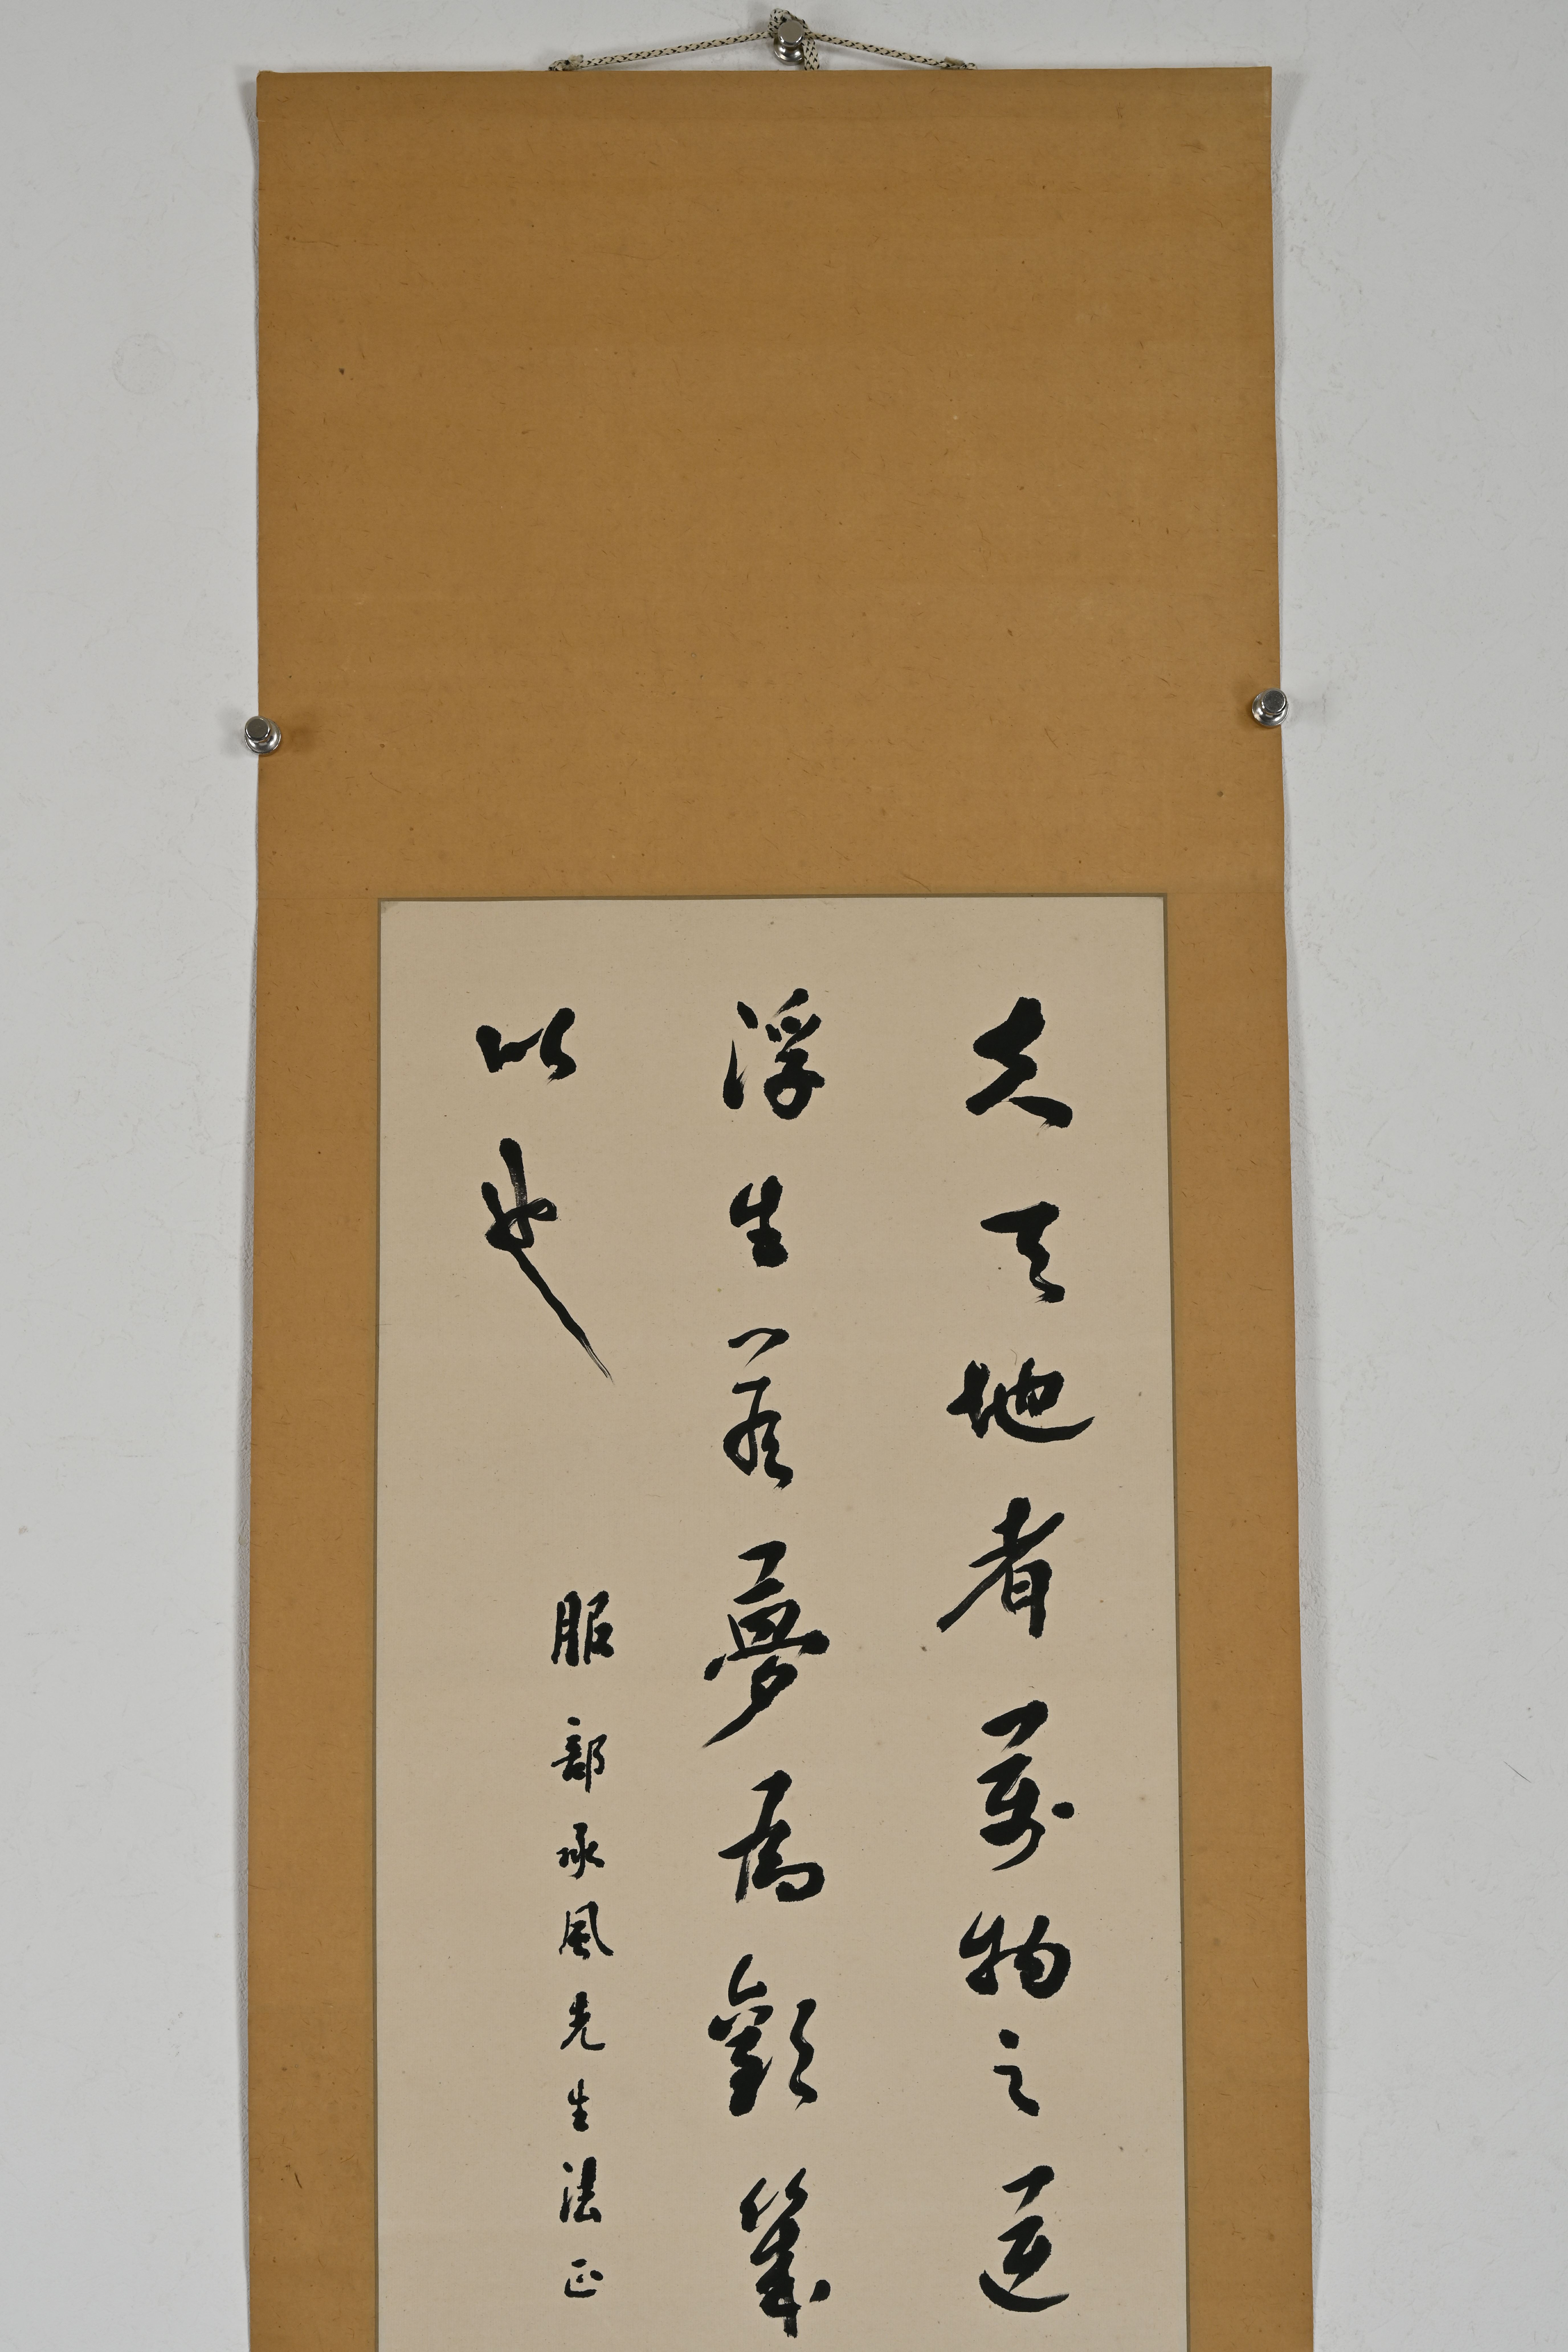 夫天地者萬物之逆
浮生若夢為歡幾
以也
服部承風先生法正